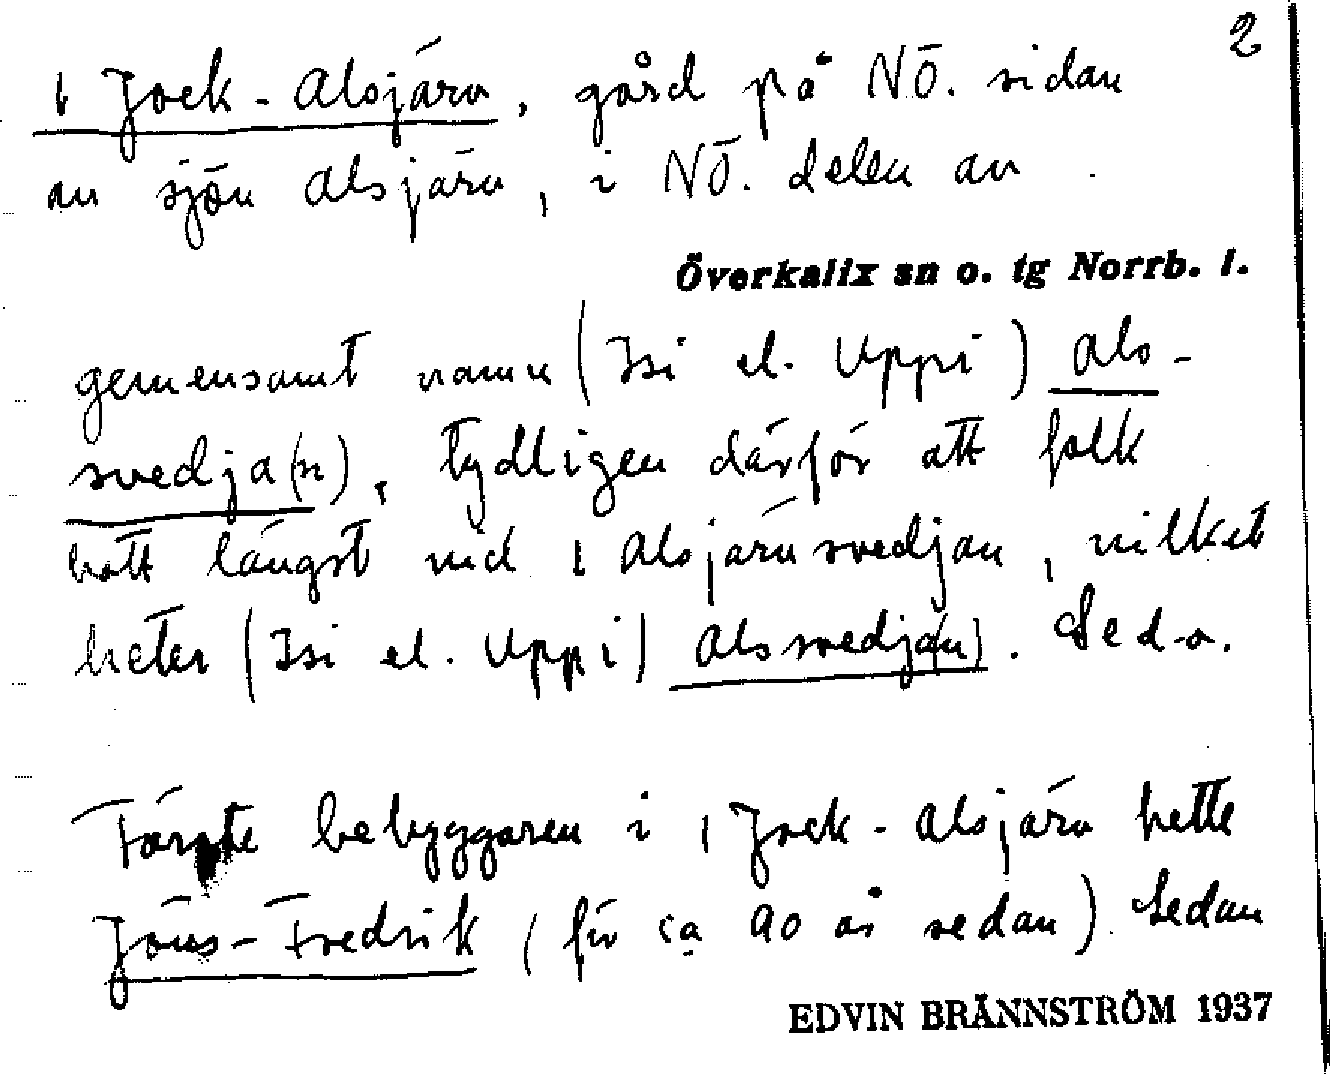 2
1 Jock-Alsjärv, gård på NÖ. sidan
av sjön Alsjärv, i NÖ. delen av
Överkalix sn o. tg Norrb. l.
gemensamt namn (Isi el. Uppi) Als-
svedja(n), tydligen därför att folk
bott längst vid 1 Alsjärvsvedjan, vilket
heter (Isi el. Uppi) Alssvedja(n). Se d.o.
Förste bebyggaren i 1 Jock-Alsjärv hette
Jöns-Fredrik (för ca 90 år sedan). Sedan
EDVIN BRÄNNSTRÖM 1937